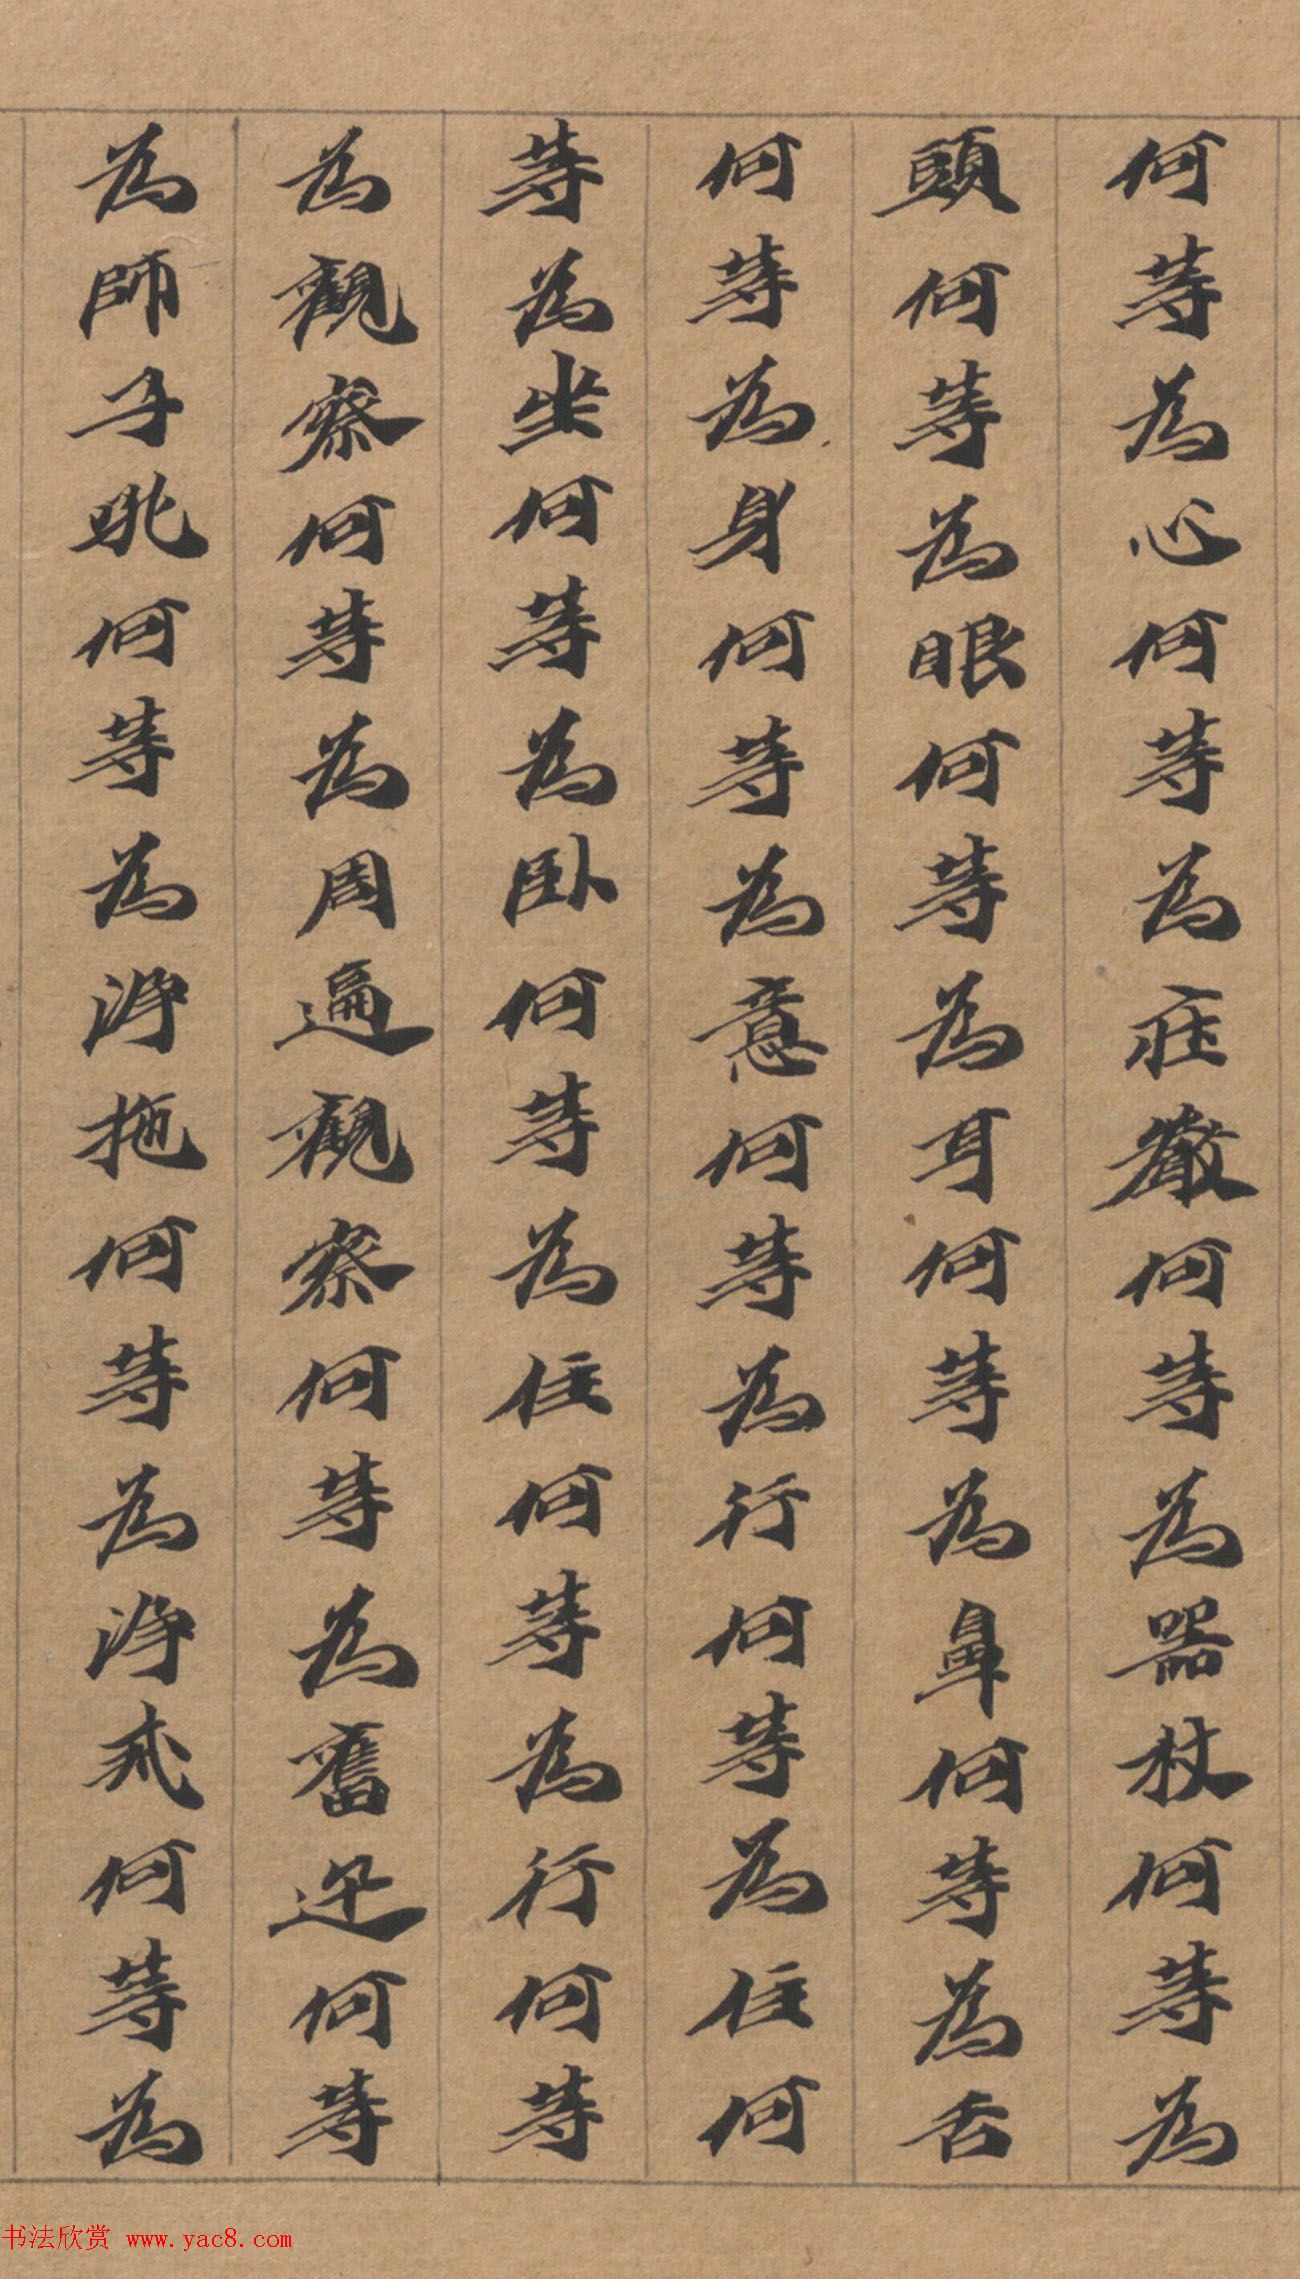 何等為心何等為莊嚴何等為器杖何等為
頭何等為眼何等為耳何等為鼻何等為舌
何等為身何等為意何等為行何等為住何
等為坐何等為卧何等為住何等為行何等
為觀察何等為周遍觀察何等為奮迅何等
為師子吼何等為淨施何等為淨戒何等為
书法欣赏 www.yac8.com